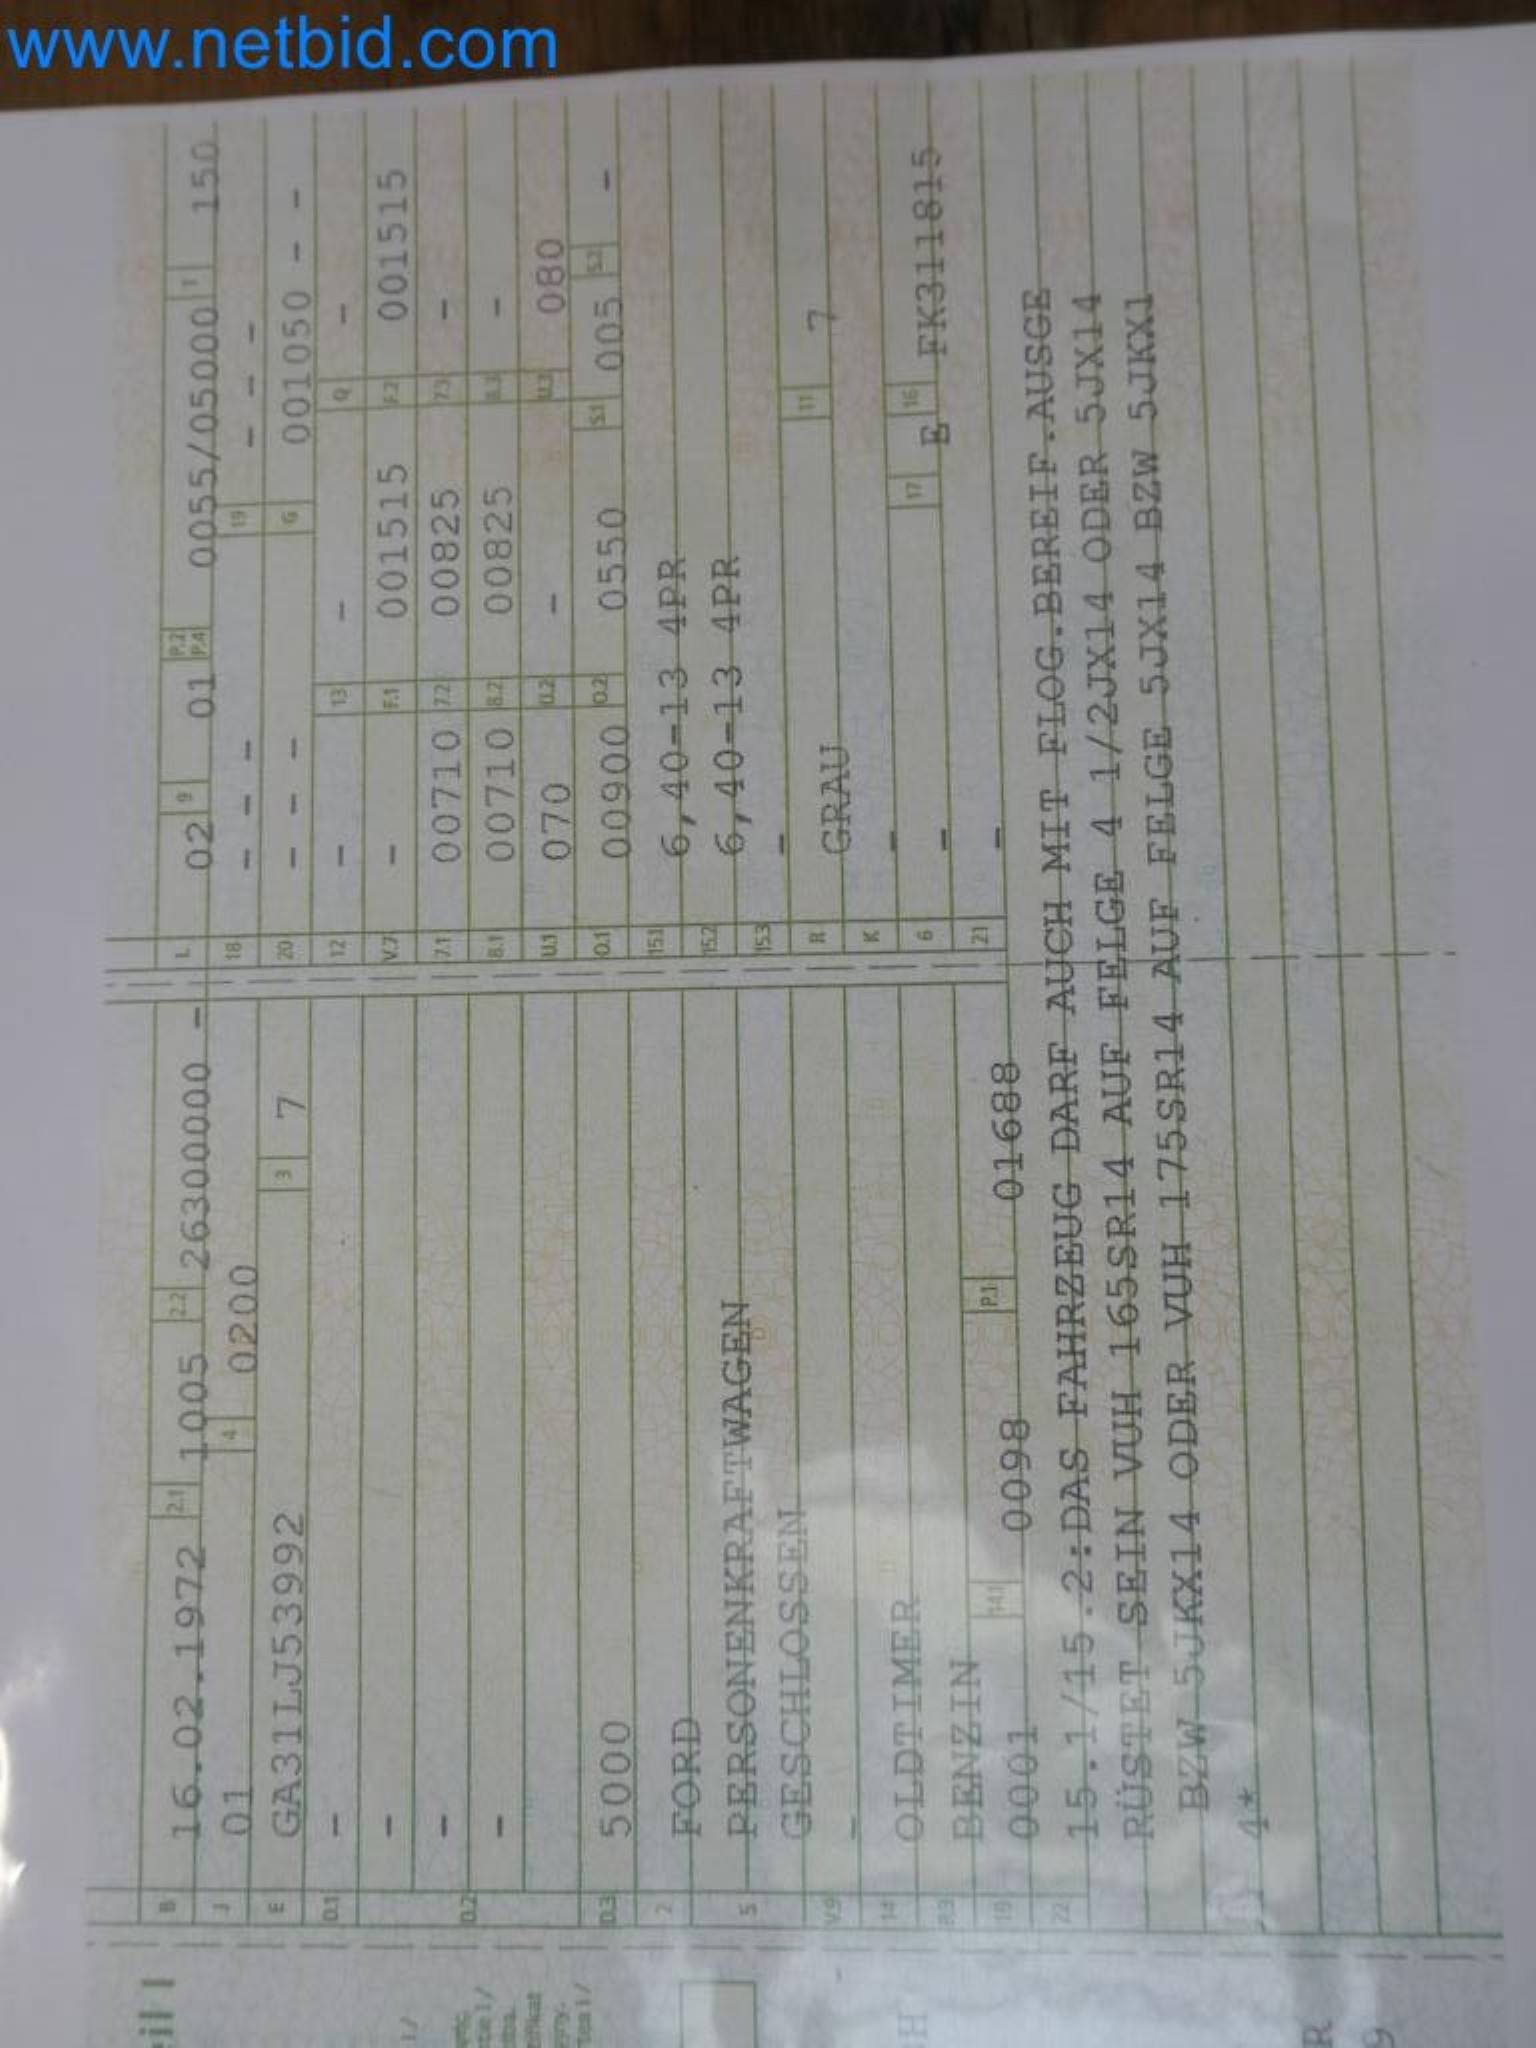 www.netbid.com
eil I
B 16.02.1972 2.1 1005 2.2 26300000 -
J 01 4 0200
E GA31LJ53992 3 7
D.1 -
-
D.2 -
-
D.3 5000
2 FORD
5 PERSONENKRAFTWAGEN
GESCHLOSSEN
V.9 -
14 OLDTIMER
P.3 BENZIN
10 0001 14.1 0098 P.1 01688
22 15.1/15.2:DAS FAHRZEUG DARF AUCH MIT FLOG.BEREIF.AUSGE
RÜSTET SEIN VUH 165SR14 AUF FELGE 4 1/2JX14 ODER 5JX14
BZW 5JKX14 ODER VUH 175SR14 AUF FELGE 5JX14 BZW 5JKX1
4*
L 02 9 01 P.2 P.4 0055/05000 T 150
18 - - - 19 - - -
20 - - - G 001050 - -
12 - 13 - Q -
V.7 - F.1 001515 F.2 001515
7.1 00710 7.2 00825 7.3 -
8.1 00710 8.2 00825 8.3 -
U.1 070 U.2 - U.3 080
O.1 00900 O.2 0550 S.1 005 S.2 -
15.1 6,40-13 4PR
15.2 6,40-13 4PR
15.3 -
R GRAU 11 7
K -
6 - 17 E 16 FK311815
21 -
H
R
9